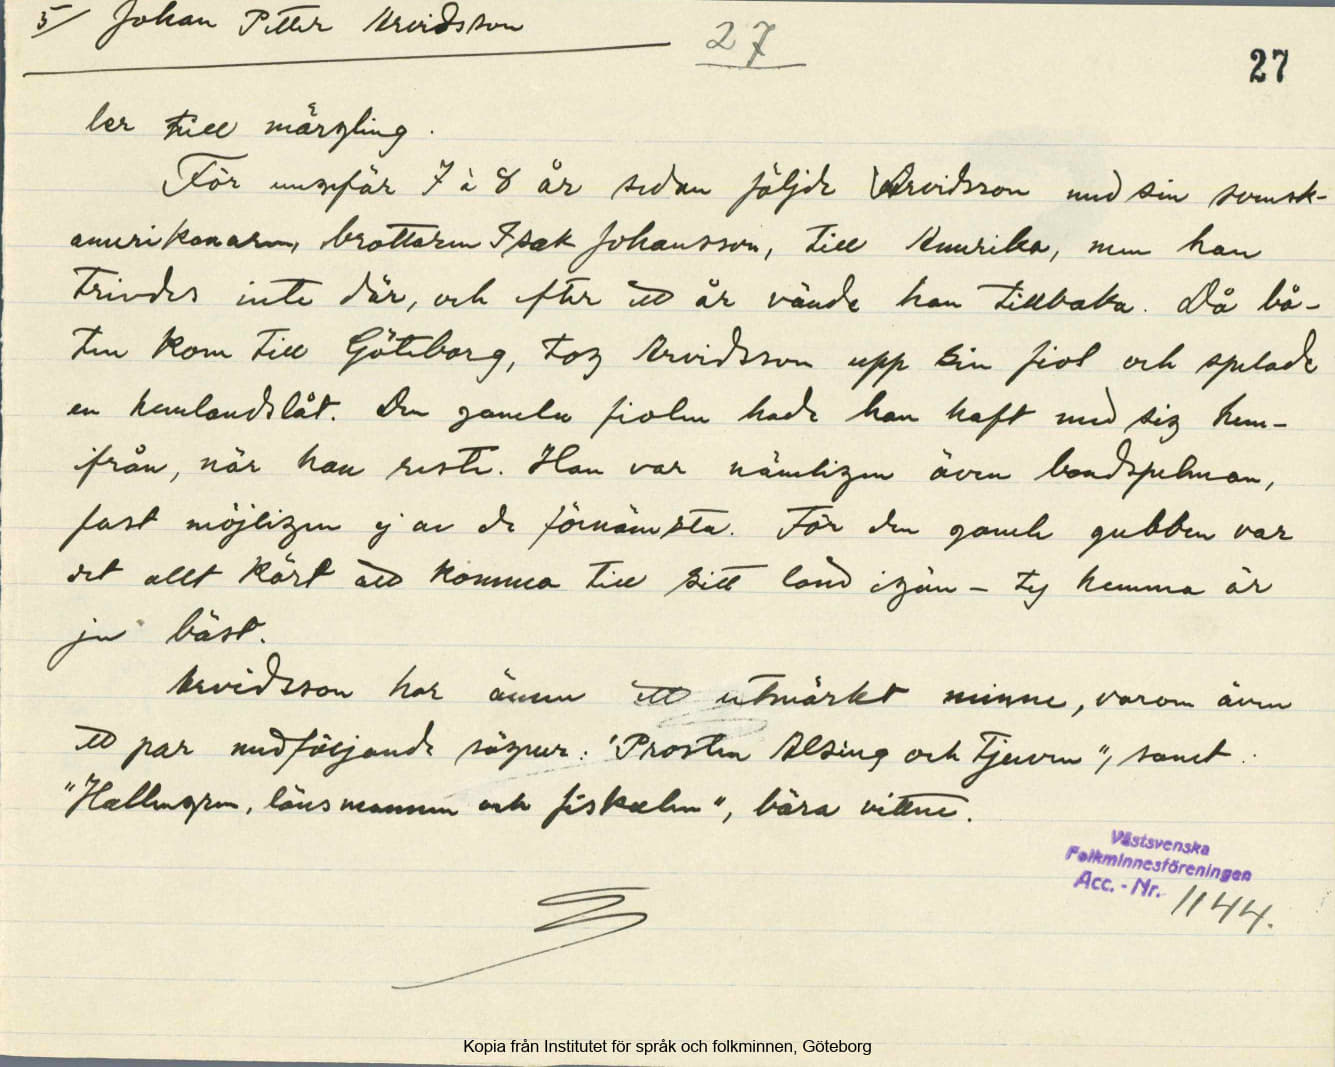 5/ Johan Petter Arvidsson
27
27
ler till märgling.
För ungefär 7 à 8 år sedan följde Arvidsson med sin svensk-
amerikanaren, brottaren Isak Johansson, till Amerika, men han
trivdes inte där, och efter ett år vände han tillbaka. Då bå-
ten kom till Göteborg, tog Arvidsson upp sin fiol och spelade
en hemlandslåt. Den gamla fiolen hade han haft med sig hem-
ifrån, när han reste. Han var nämligen även bondspelman,
fast möjligen ej av de förnämsta. För den gamle gubben var
det allt kärt att komma till sitt land igän – ty hemma är
ju bäst.
Arvidsson har ännu ett utmärkt minne, varom även
ett par medföljande sägner: "Prosten Alsing och Tjuven", samt:
"Hällungen, länsmannen och fiskalen", bära vittne.
Västsvenska
Folkminnesföreningen
Acc. - Nr. 1144.
Kopia från Institutet för språk och folkminnen, Göteborg